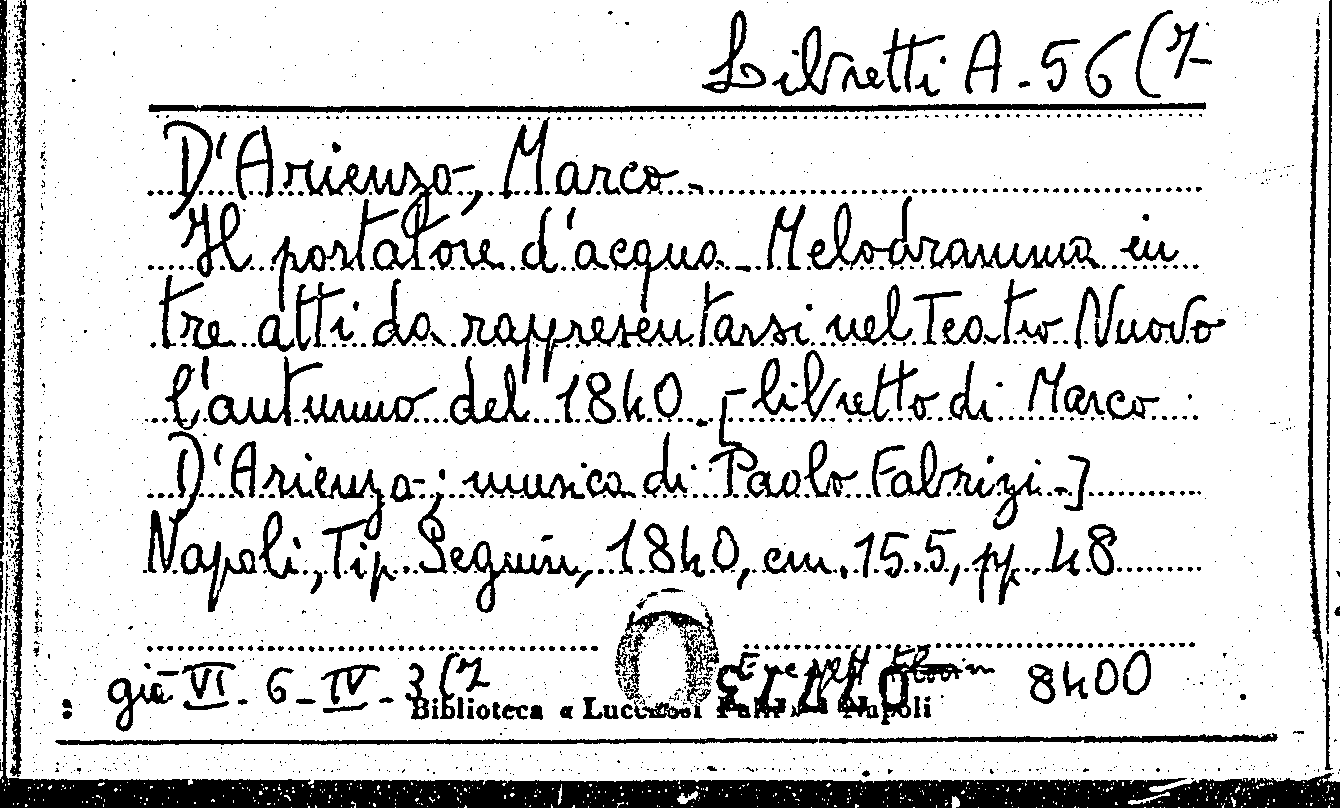 Libretti A. 56 (7
D'Arienzo, Marco.
Il portatore d'acqua. Melodramma in
tre atti da rappresentarsi nel Teatro Nuovo
l'autunno del 1840. [libretto di Marco
D'Arienzo; musica di Paolo Fabrizi.]
Napoli, Tip. Seguin, 1840, cm. 15.5, pp. 48
già VI. 6 - IV - 3 (7 8400
Biblioteca « Lucchesi Palli » - Napoli